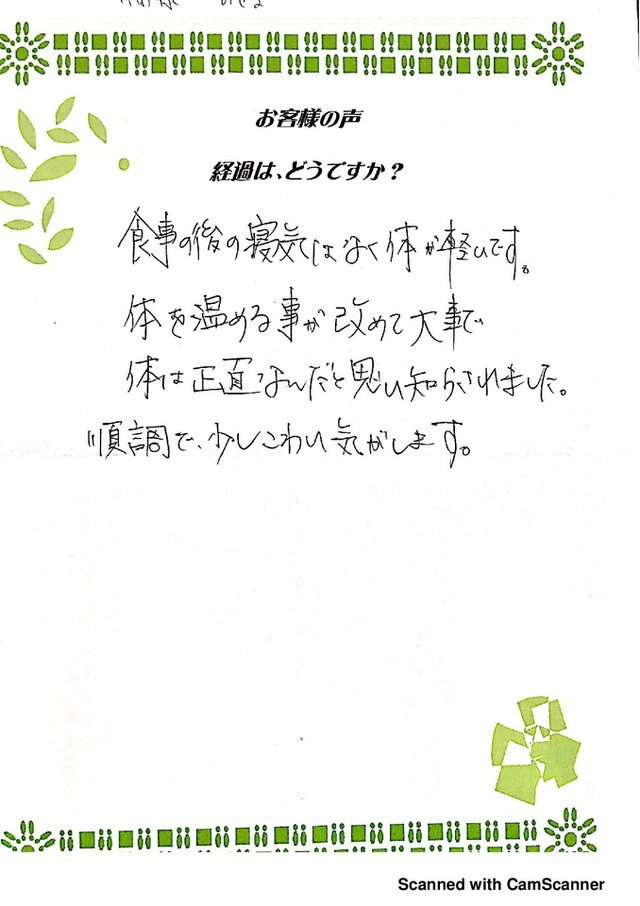 お客様の声
経過は、どうですか？
食事の後の寝気はなく体が軽いです。
体を温める事が改めて大事で
体は正直なんだと思い知らされました。
順調で、少しこわい気がします。
Scanned with CamScanner